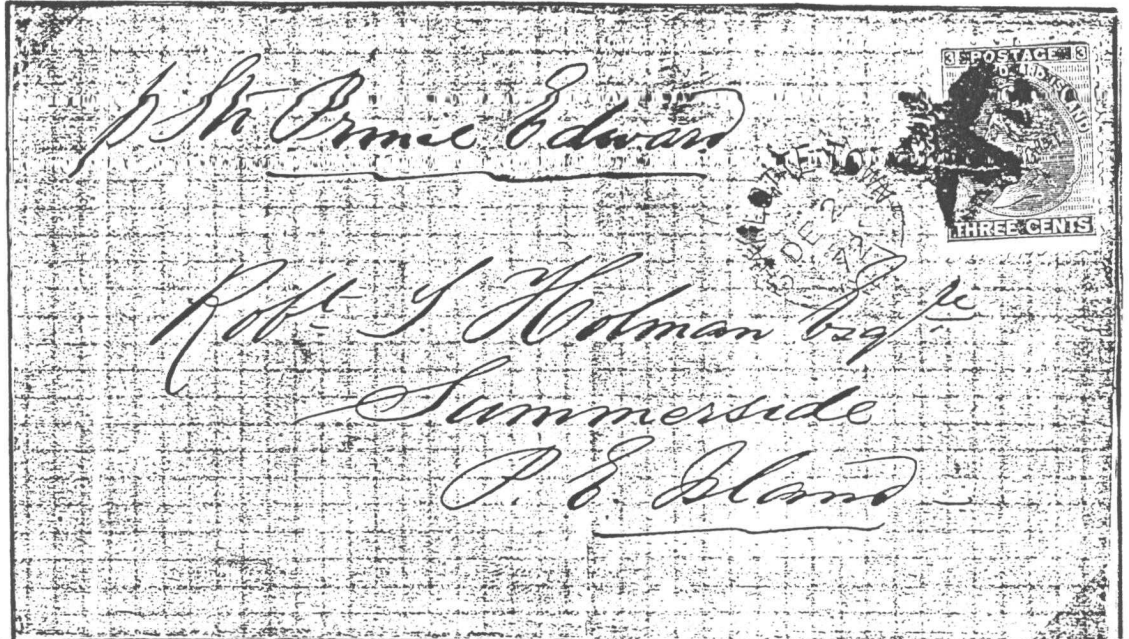 p Str Prince Edward
3 POSTAGE 3
THREE CENTS
CHARLOTTETOWN
DE 2
Robt S Holman Esqre
Summerside
P. E. Island